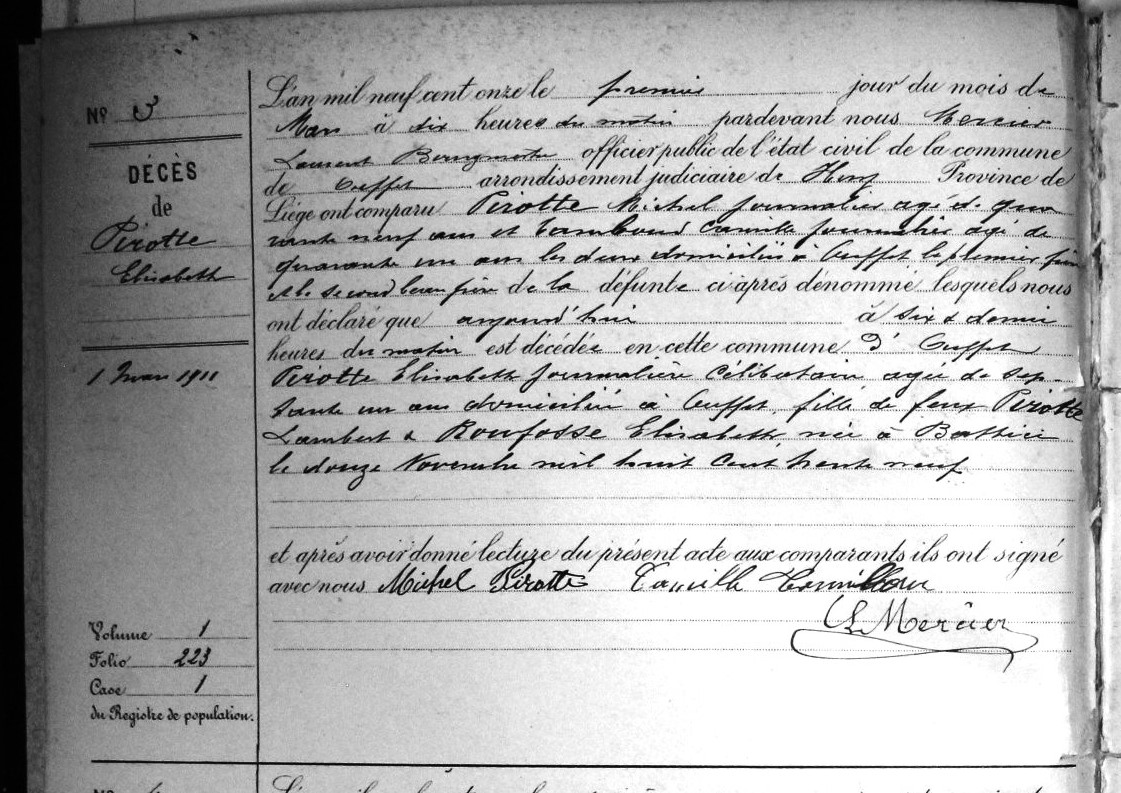 Nº 3
DÉCÈS
de
Pirotte
Elisabeth
1 Mars 1911
L'an mil neuf cent onze le premier jour du mois de
Mars à dix heures du matin pardevant nous Mercier
Laurent officier public de l'état civil de la commune
de Ouffet arrondissement judiciaire de Huy Province de
Liège ont comparu Pirotte Michel journalier agé de qua
rante neuf ans et Camille journalier agé de
quarante un ans les deux domiciliés à Ouffet le premier frère
et le second beau frère de la défunte ci après dénommé lesquels nous
ont déclaré que aujourd'hui à six & demie
heures du matin est décédée en cette commune d'Ouffet
Pirotte Elisabeth journalière célibataire agée de sep-
tante un ans domiciliée à Ouffet, fille de feux Pirotte
Lambert & Roufosse Elisabeth, née à Battice
le douze Novembre mil huit cent trente neuf
et après avoir donné lecture du présent acte aux comparants ils ont signé
avec nous Michel Pirotte Camille
L Mercier
Volume 1
Folio 223
Case 1
du Registre de population.